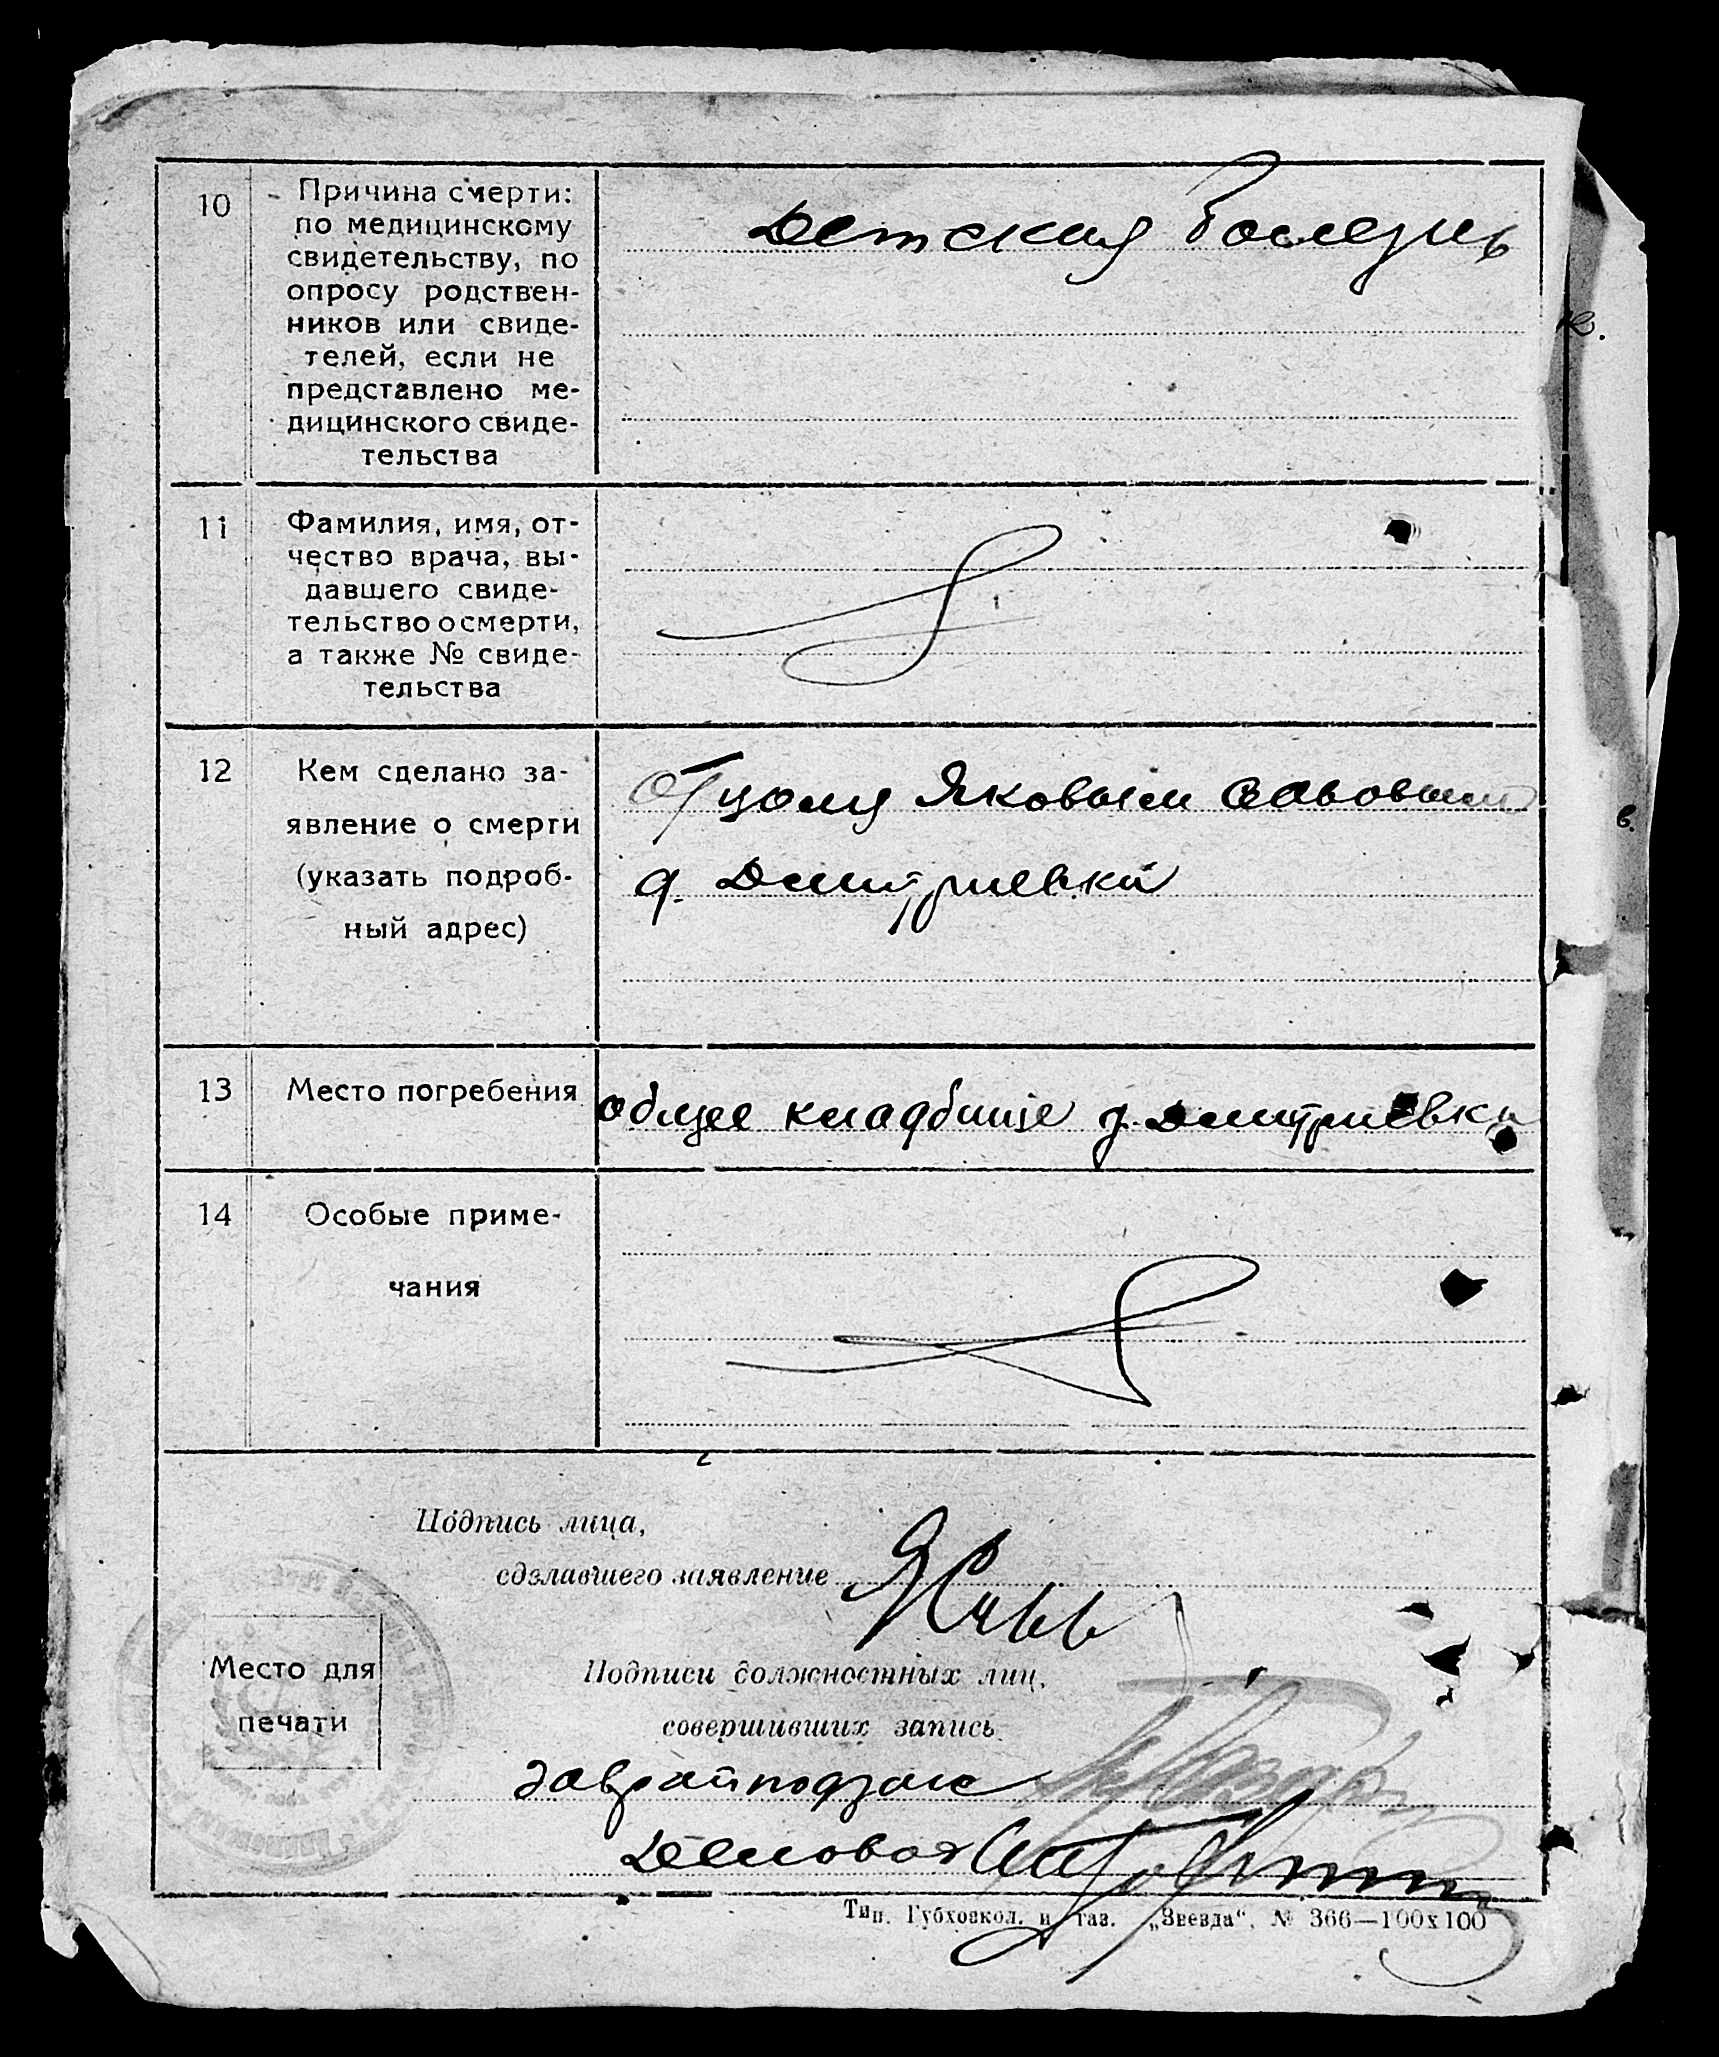 10
Причина смерти:
по медицинскому
свидетельству, по
опросу родствен-
ников или свиде-
телей, если не
представлено ме-
дицинского свиде-
тельства
Детская болезнь
11
Фамилия, имя, от-
чество врача, вы-
давшего свиде-
тельство о смерти,
а также № свиде-
тельства
12
Кем сделано за-
явление о смерти
(указать подроб-
ный адрес)
Отцому Яковым
д. Дмитриевка
13
Место погребения
общее кладбище д. Дмитриевки
14
Особые приме-
чания
Подпись лица,
сделавшего заявление
ЯСавв
Место для
печати
Подписи должностных лиц,
совершивших запись
Завройподзагс
Деловод
Тип. Губхозкол. и газ. „Звезда“. № 366—100х100